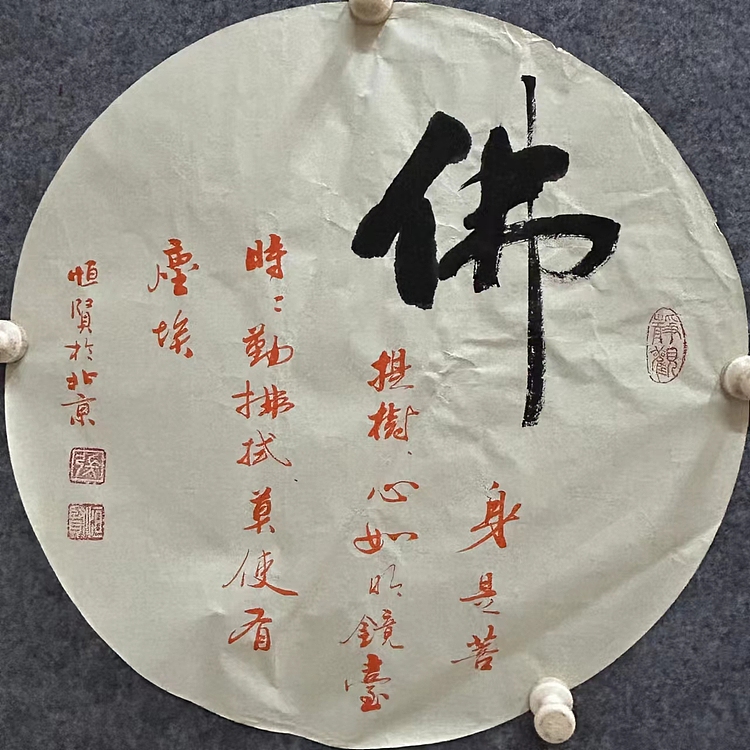 靜觀
佛
身是菩
提樹心如明鏡臺
時〻勤拂拭莫使有
塵埃
恒賢於北京
張
恒賢